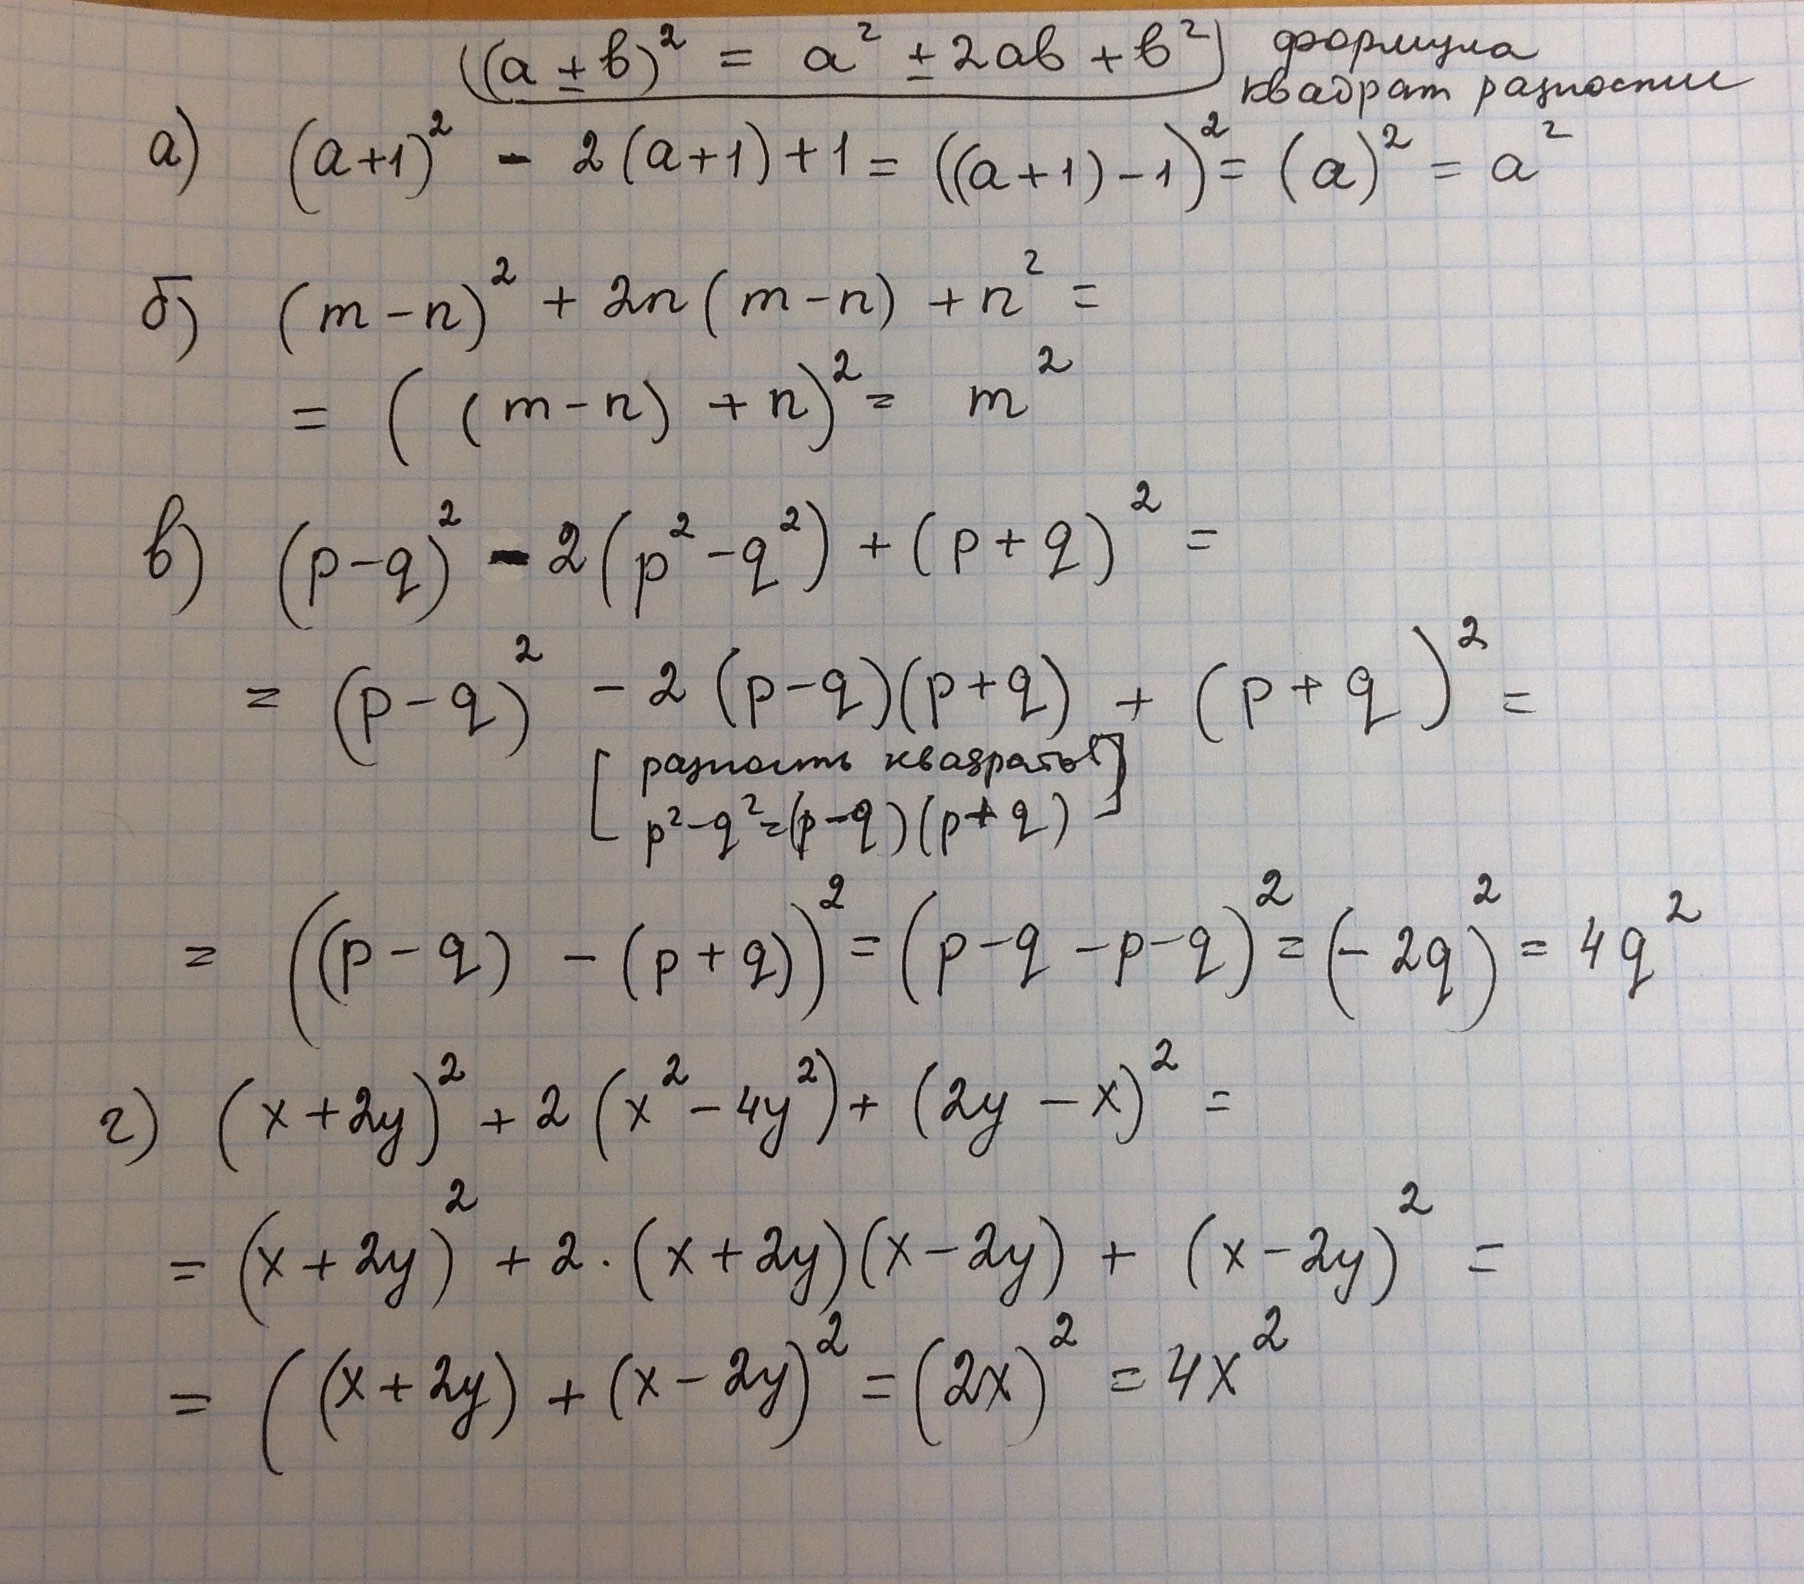 ((a ± b)² = a² ± 2ab + b²) формула
квадрат разности
а) (a+1)² - 2(a+1)+1 = ((a+1)-1)² = (a)² = a²
б) (m-n)² + 2n(m-n) + n² =
= ((m-n) + n)² = m²
в) (p-q)² - 2(p²-q²) + (p+q)² =
= (p-q)² - 2(p-q)(p+q) + (p+q)² =
[разность квадратов]
p²-q²=(p-q)(p+q)
= ((p-q) - (p+q))² = (p-q-p-q)² = (-2q)² = 4q²
г) (x+2y)² + 2(x²-4y²) + (2y-x)² =
= (x+2y)² + 2·(x+2y)(x-2y) + (x-2y)² =
= ((x+2y) + (x-2y)² = (2x)² = 4x²